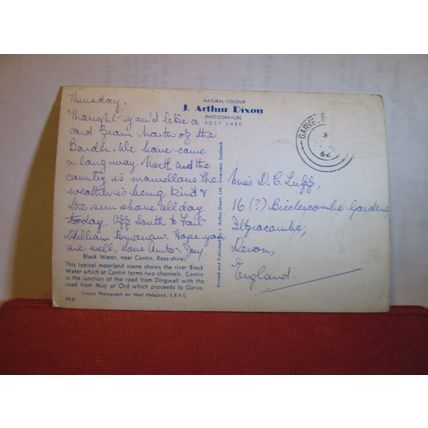 NATURAL COLOUR
J. Arthur Dixon
PHOTOGRAVURE
POST CARD
GARVE
62
Thursday.
Thought you'd like a
card from North of the
Border. We have come
a long way North and the
country is marvellous the
weather is being kind &
the sun shone all day
today. Off South to Fort
William tomorrow. Hope you
are well, love
Black Water, near Contin, Ross-shire
This typical moorland scene shows the river Black
Water which at Contin forms two channels. Contin
is the junction of the road from Dingwall with the
road from Muir of Ord which proceeds to Garve.
Colour Photograph by Noel Habgood, F.R.P.S.
Printed and Published by J. Arthur Dixon, Ltd. Inverness, Scotland.
Miss D. C. Luff,
16 (?) Bicclescombe Gardens,
Ilfracombe,
Devon,
England.